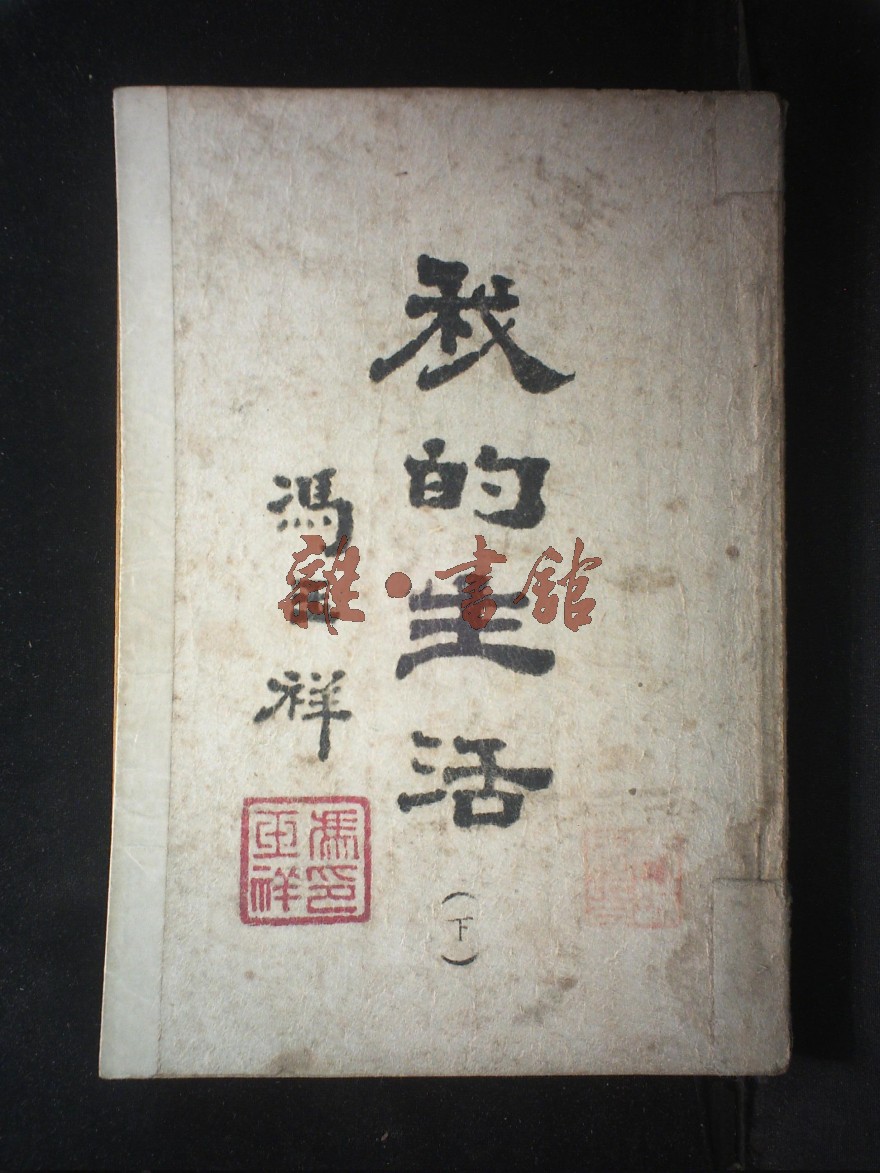 我的生活
(下)
馮玉祥
馮印
玉祥
雜·書館